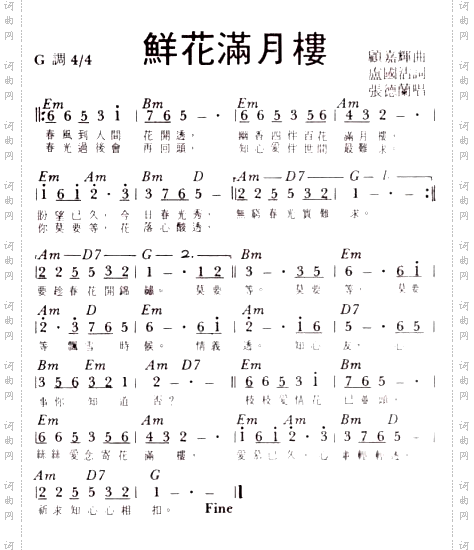 鮮花滿月樓
G 調 4/4
顧嘉輝曲
盧國沾詞
張德蘭唱
Em Bm Em Am
‖: 6 6 5 3 i | 7 6 5 - · | 6 6 5 3 i | 4 3 2 - · |
春風到人間 花開透, 幽香四伴百花 滿月樓,
春光過後會 再回頭, 知心愛伴世間 最難求,
Em Am Bm D Am — D7 — G — 1.
| i 6 i 2 · 3 | 3 7 6 5 - · | 2 2 5 5 3 2 | 1 - · - :‖
盼望已久,今日春光秀, 無窮春光實難 求。
你莫要等,花落心酸透,
Am — D7 — G — 2. Bm Em
| 2 2 5 5 3 2 | 1 - · 1 2 ‖ 3 - · 3 5 | 6 - · 6 i |
要趁春花開錦繡。 莫要 等。 莫要 等, 莫要
Am Em Am D7
| 2 · 3 7 6 5 | 6 - · 6 i | 2 - · i 2 | 3 - · 6 i |
等 飄雪 時候。 情義 透。 知心 友, 心
Bm Em Am D7 Em Bm
| 3 5 6 3 2 1 | 2 - · - ‖ 6 6 5 3 i | 7 6 5 - · |
事你 知道 否? 枝枝愛情花 已蔓頭,
Em Am Em Am Bm D
| 6 6 5 3 5 6 | 4 3 2 - · | i 6 i 2 · 3 | 3 7 6 5 - · |
絲絲愛念寄花 滿 樓,
Am D7 G
| 2 2 5 5 3 2 | 1 - · - ‖
祈求知心心相 扣。 Fine
词曲网